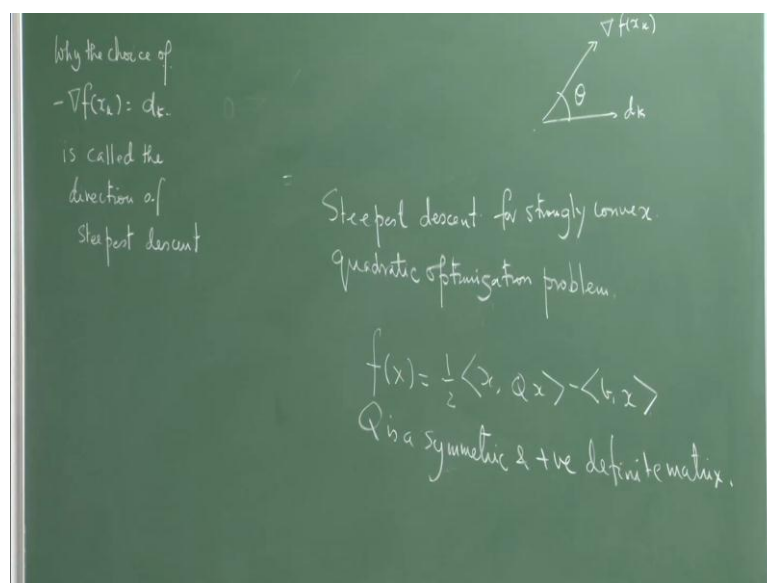 Why the choice of
-∇f(xₖ) = dₖ.
is called the
direction of
steepest descent
∇f(xₖ)
θ
dₖ
=
Steepest descent for strongly convex
quadratic optimization problem.
f(x) = 1/2 <x, Qx> - <b, x>
Q is a symmetric & +ve definite matrix.